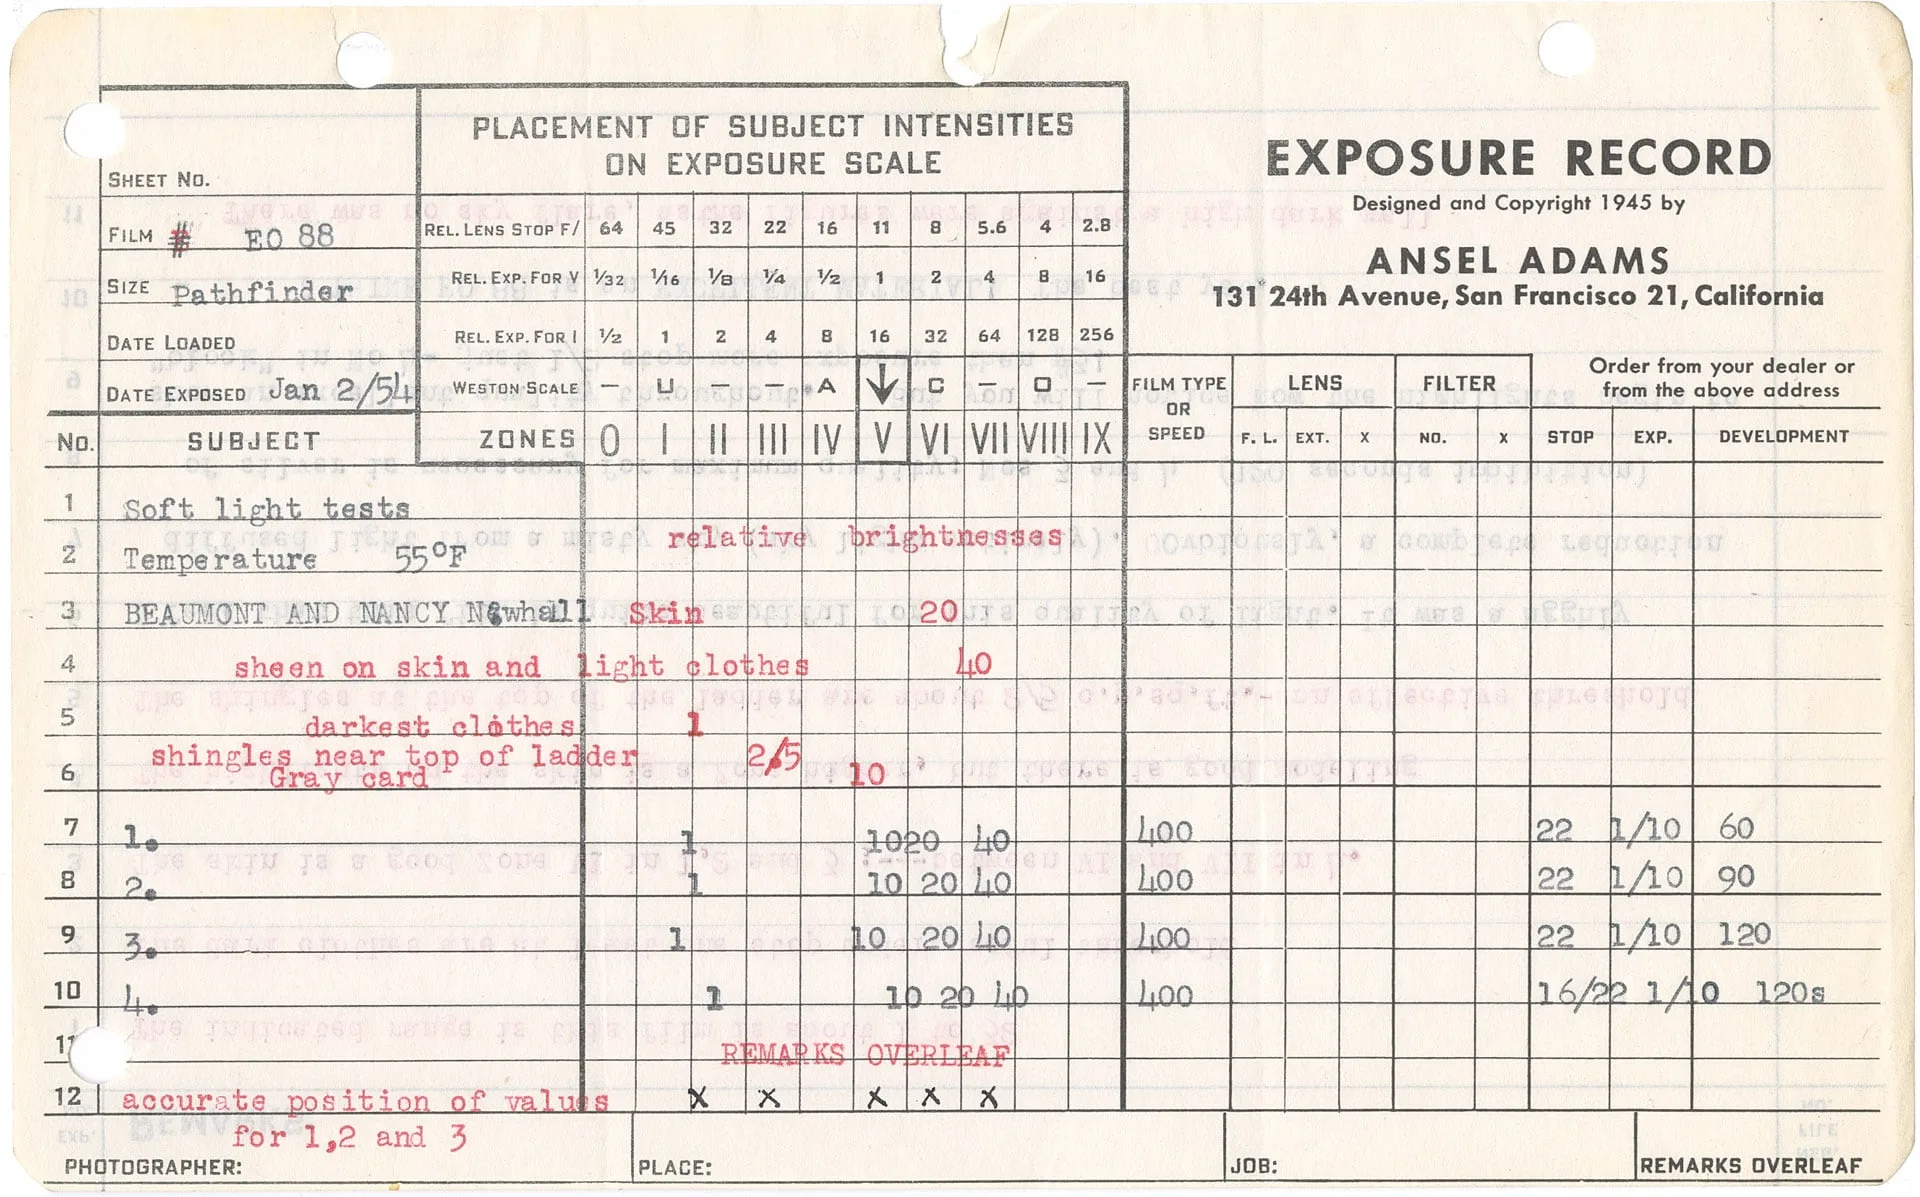 PLACEMENT OF SUBJECT INTENSITIES
ON EXPOSURE SCALE
EXPOSURE RECORD
Designed and Copyright 1945 by
ANSEL ADAMS
131 24th Avenue, San Francisco 21, California
Order from your dealer or
from the above address
SHEET NO.
FILM # EO 88
SIZE Pathfinder
DATE LOADED
DATE EXPOSED Jan 2/54
REL. LENS STOP F/ 64 45 32 22 16 11 8 5.6 4 2.8
REL. EXP. FOR V 1/32 1/16 1/8 1/4 1/2 1 2 4 8 16
REL. EXP. FOR I 1/2 1 2 4 8 16 32 64 128 256
WESTON SCALE — U — — A ↓ C — O —
NO. SUBJECT ZONES 0 I II III IV V VI VII VIII IX
FILM TYPE OR SPEED
LENS
F. L. EXT. X
FILTER
NO. X
STOP EXP. DEVELOPMENT
1 Soft light tests
relative brightnesses
2 Temperature 55°F
3 BEAUMONT AND NANCY Newhall Skin 20
4 sheen on skin and light clothes 40
5 darkest clothes 1
shingles near top of ladder 2/5
6 Gray card 10
7 1. 1 10 20 40 400 22 1/10 60
8 2. 1 10 20 40 400 22 1/10 90
9 3. 1 10 20 40 400 22 1/10 120
10 4. 1 10 20 40 400 16/22 1/10 120s
11 REMARKS OVERLEAF
12 accurate position of values x x x x x
for 1,2 and 3
PHOTOGRAPHER: PLACE: JOB: REMARKS OVERLEAF